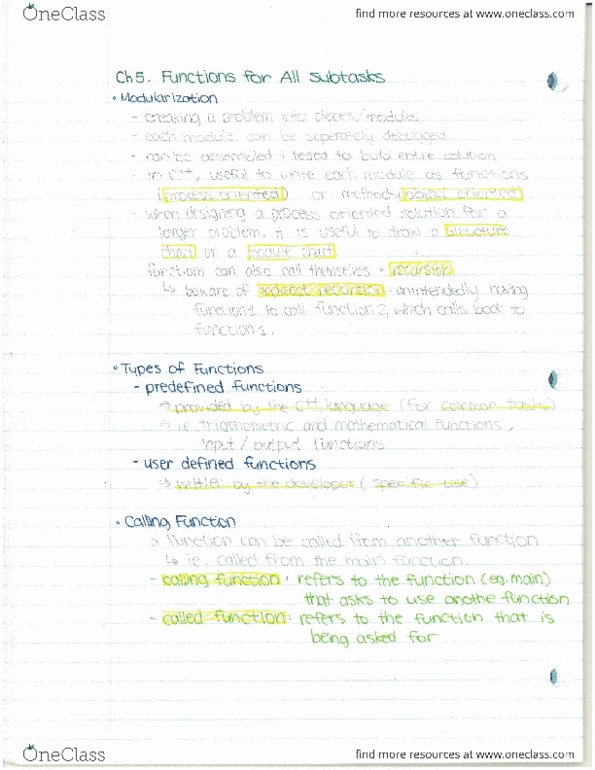 OneClass
find more resources at www.oneclass.com
Ch 5. Functions for All Subtasks
• Modularization
- breaking a problem into pieces/modules
- each module can be seperately debugged
- can be assembled & tested to build entire solution
- in C++, useful to write each module as functions
(process oriented) or method (object oriented)
- when designing a process oriented solution for a
larger problem, it is useful to draw a structure
chart or a module chart
functions can also call themselves - recursion
↳ beware of indirect recursion: unintendedly having
function 1 to call function 2, which calls back to
function 1.
• Types of Functions
- predefined functions
→ provided by the C++ language (for common tasks)
→ i.e. trigonometric and mathematical functions,
input / output functions
- user defined functions
→ written by the developer (specific use)
• Calling Function
a function can be called from another function
↳ ie. called from the main function
- calling function: refers to the function (eg. main)
that asks to use anothe function
- called function: refers to the function that is
being asked for
OneClass
find more resources at www.oneclass.com